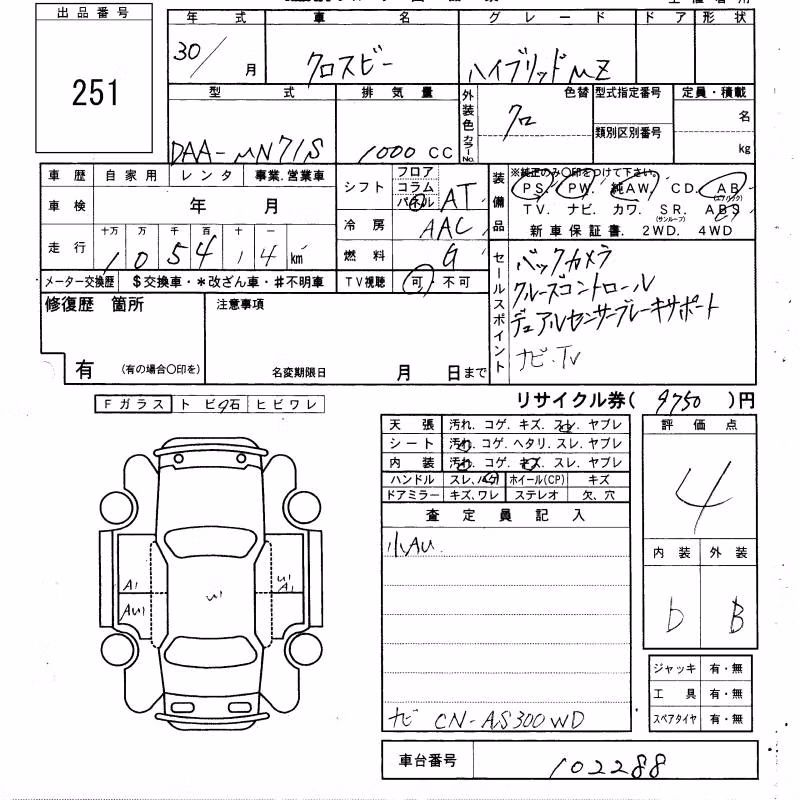 出品番号
251
年式 車名 グレード ドア 形状
30/ 月 クロスビー ハイブリッドMZ
型式 排気量 外装色 カラーNo. 色替 型式指定番号 定員・積載
DAA-MN71S 1000 CC クロ 類別区別番号 名 kg
車歴 自家用 レンタ 事業.営業車
車検 年 月
走行 十万 万 千 百 十 一
105414 km
メーター交換歴 $交換車・*改ざん車・#不明車
シフト フロア コラム パネル AT
冷房 AAC
燃料 G
TV視聴 可・不可
装備品 ※純正のみ〇印をつけて下さい。
PS. PW. 純AW. CD. AB (エアバッグ)
TV. ナビ. カワ. SR. (サンルーフ) ABS
新車保証書. 2WD. 4WD
セールスポイント
バックカメラ
クルーズコントロール
デュアルセンサーブレーキサポート
ナビ.TV
修復歴 箇所
有 (有の場合〇印を)
注意事項
名変期限日 月 日まで
リサイクル券( 9750 )円
Fガラス トビ石 ヒビワレ
天張 汚れ. コゲ. キズ. スレ. ヤブレ
シート 汚れ. コゲ. ヘタリ. スレ. ヤブレ
内装 汚れ. コゲ. キズ. スレ. ヤブレ
ハンドル スレ. ホイール(CP) キズ
ドアミラー キズ.ワレ ステレオ 欠.穴
評価点
4
内装 外装
b B
査定員記入
小AU
A1
AU1
A1
ナビ CN-AS300WD
ジャッキ 有・無
工具 有・無
スペアタイヤ 有・無
車台番号 102288